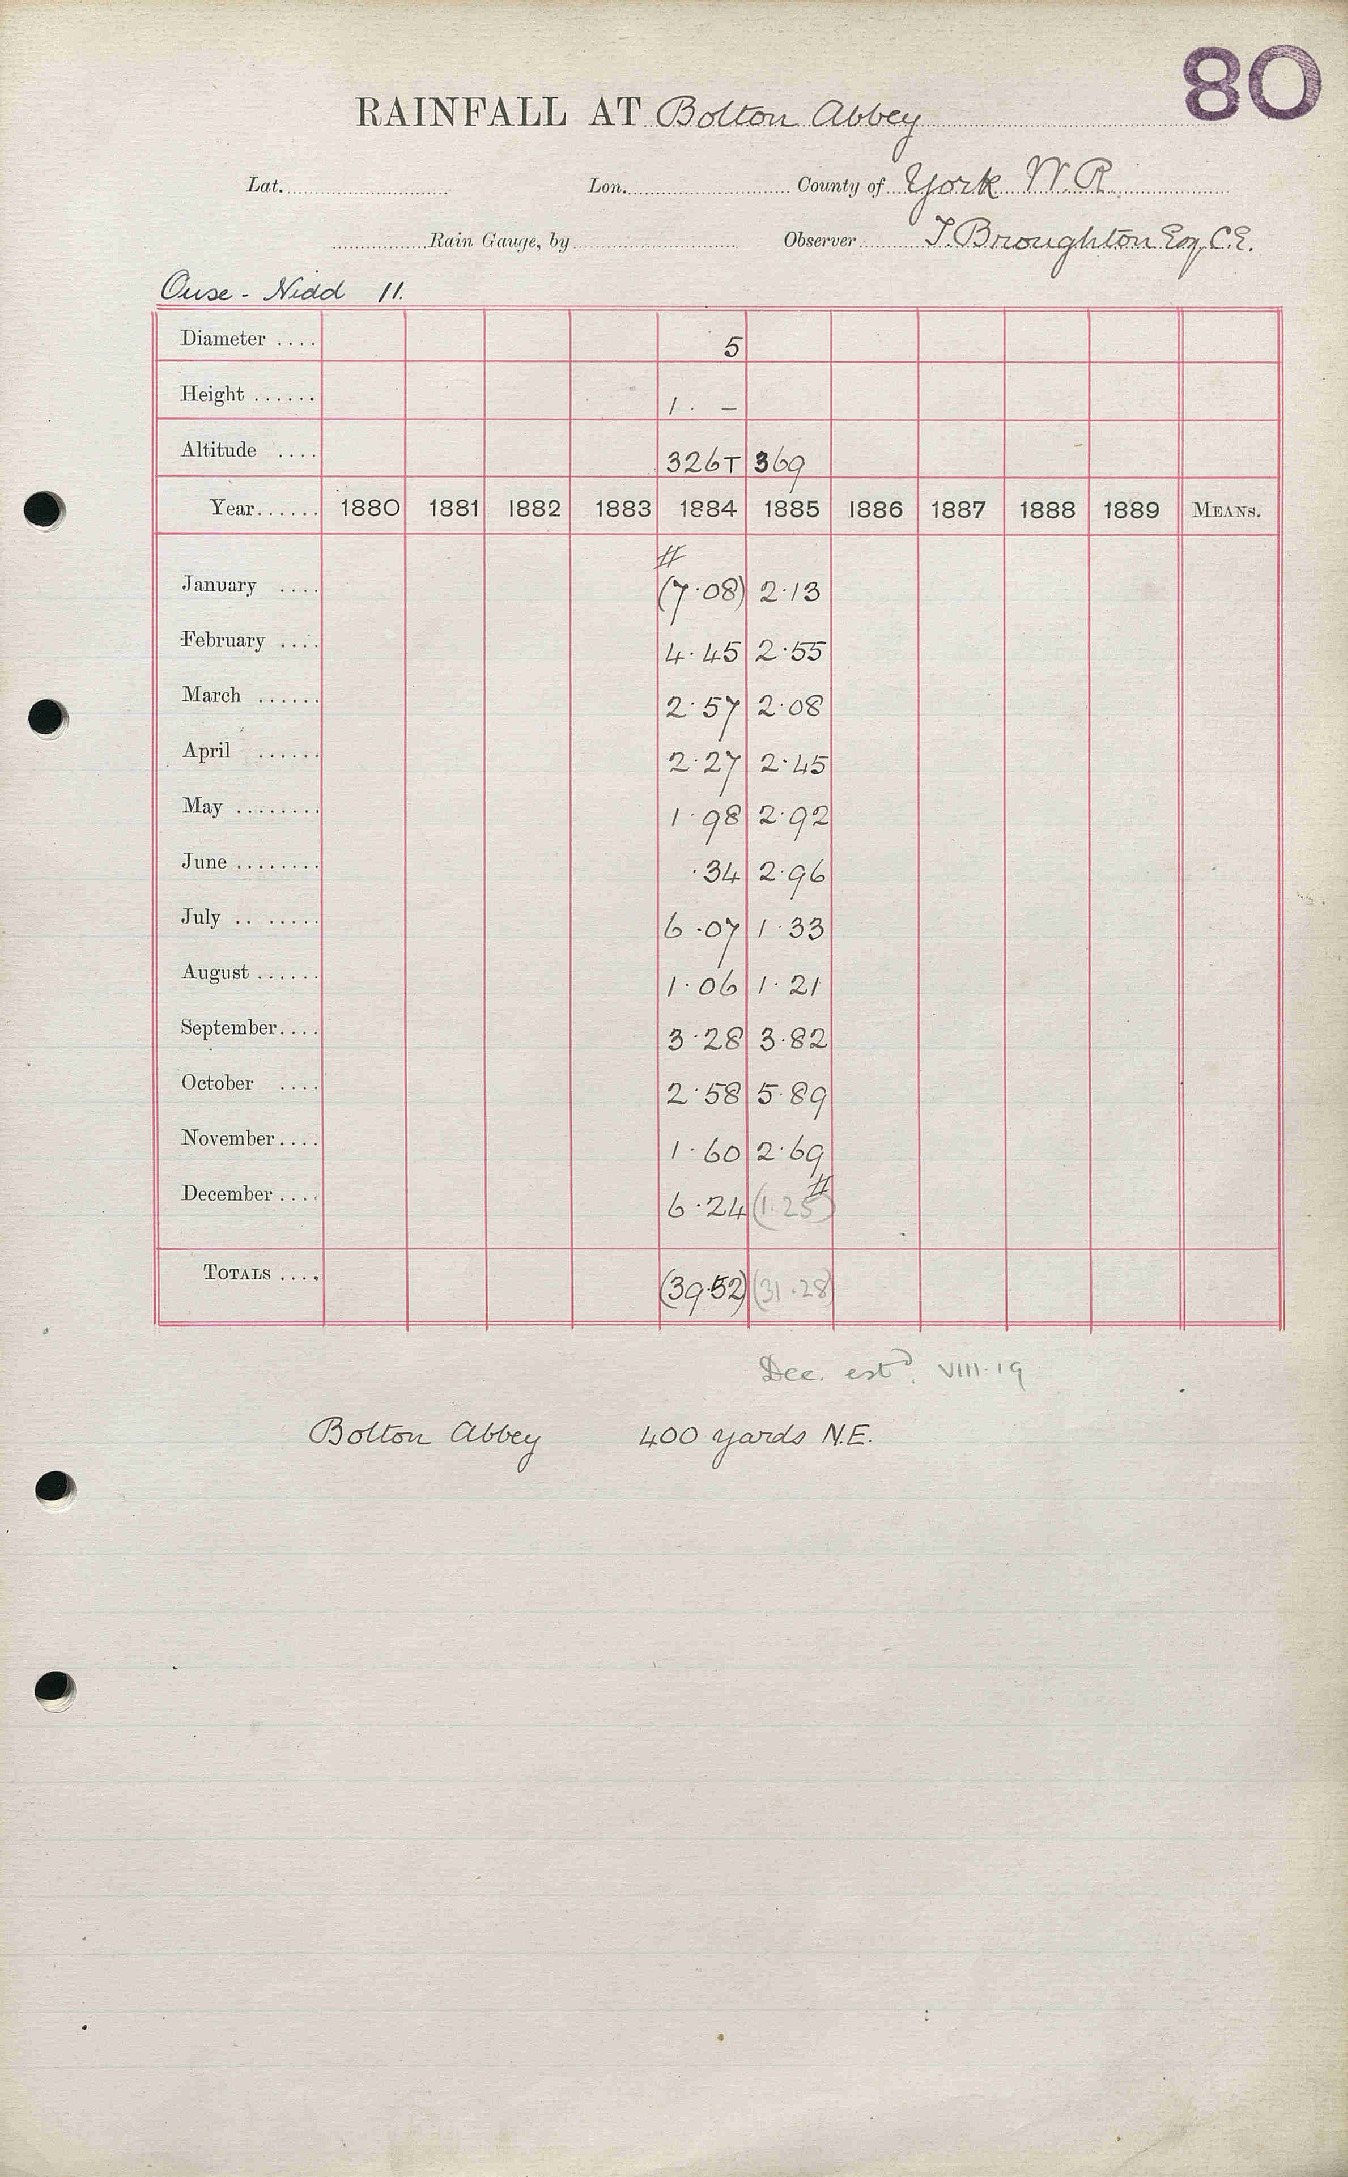 80
RAINFALL AT Bolton Abbey
Lat. Lon. County of York W.R.
Rain Gauge, by Observer T. Broughton Esq. C.E.
Ouse - Nidd 11.
Diameter .... 5
Height ...... 1 . –
Altitude .... 326T 369
Year...... 1880 1881 1882 1883 1884 1885 1886 1887 1888 1889 MEANS.
#
January .... (7.08) 2.13
February .... 4.45 2.55
March ...... 2.57 2.08
April ...... 2.27 2.45
May ........ 1.98 2.92
June ........ .34 2.96
July .. ...... 6.07 1.33
August ...... 1.06 1.21
September.... 3.28 3.82
October .... 2.58 5.89
November.... 1.60 2.69
December.... 6.24 (1.25) #
TOTALS .... (39.52) (31.28)
Dec. estd. VIII.19
Bolton Abbey 400 yards N.E.